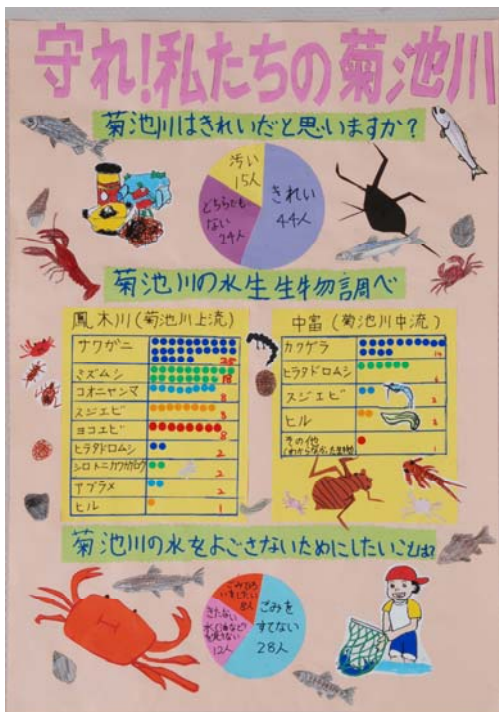 守れ!私たちの菊池川
菊池川はきれいだと思いますか?
汚い
15人
きれい
44人
どちらでも
ない
24人
菊池川の水生生物調べ
鳳木川(菊池川上流)
サワガニ
25
ミズムシ
18
コオニヤンマ
8
スジエビ
8
ヨコエビ
8
ヒラタドロムシ
2
2
アブラメ
2
ヒル
1
中富(菊池川中流)
カワゲラ
14
ヒラタドロムシ
スジエビ
ヒル
その他
1
菊池川の水をよごさないためにしたいことは?
ごみひろ
いをしたい
8人
きたない
水(油など)
を流さない
12人
ごみを
すてない
28人